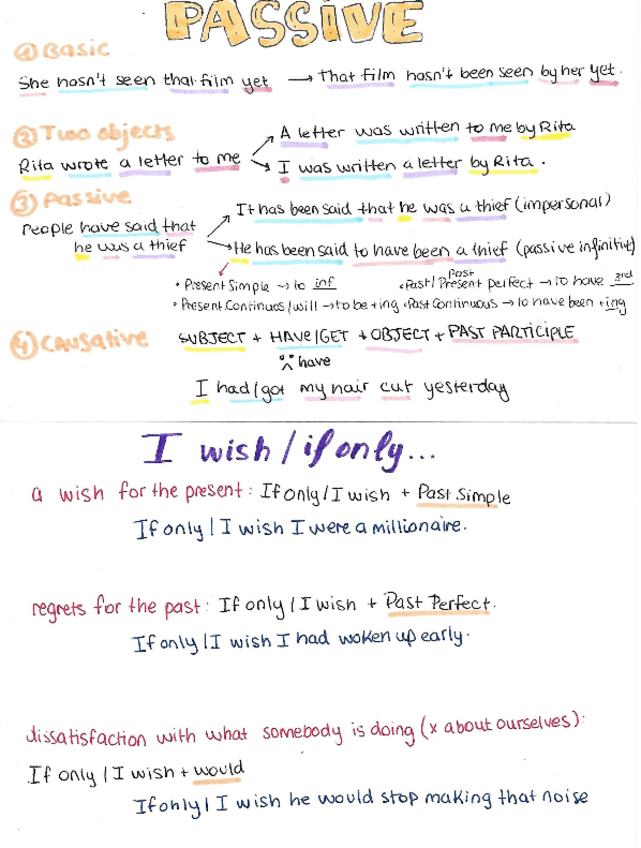 PASSIVE
① Basic
She hasn't seen that film yet → That film hasn't been seen by her yet.
② Two objects
A letter was written to me by Rita
Rita wrote a letter to me
I was written a letter by Rita.
③ Passive
It has been said that he was a thief (impersonal)
People have said that
he was a thief
He has been said to have been a thief (passive infinitive)
• Present Simple → to inf
• Past / Present perfect → to have 3rd
Past
• Present Continues / will → to be + ing
• Past Continuous → to have been + ing
④ Causative
SUBJECT + HAVE/GET + OBJECT + PAST PARTICIPLE
have
I had/got my hair cut yesterday
I wish / if only...
a wish for the present: If only / I wish + Past Simple
If only / I wish I were a millionaire.
regrets for the past: If only / I wish + Past Perfect.
If only / I wish I had woken up early.
dissatisfaction with what somebody is doing (x about ourselves):
If only / I wish + would
If only / I wish he would stop making that noise